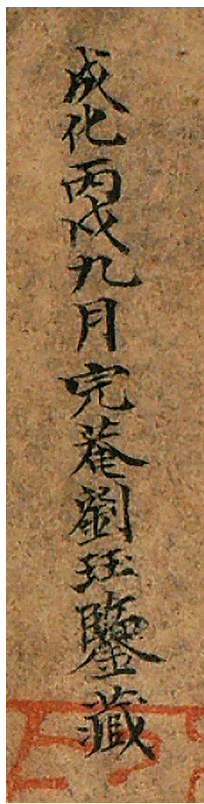 成化丙戌九月完菴劉珏鑒藏